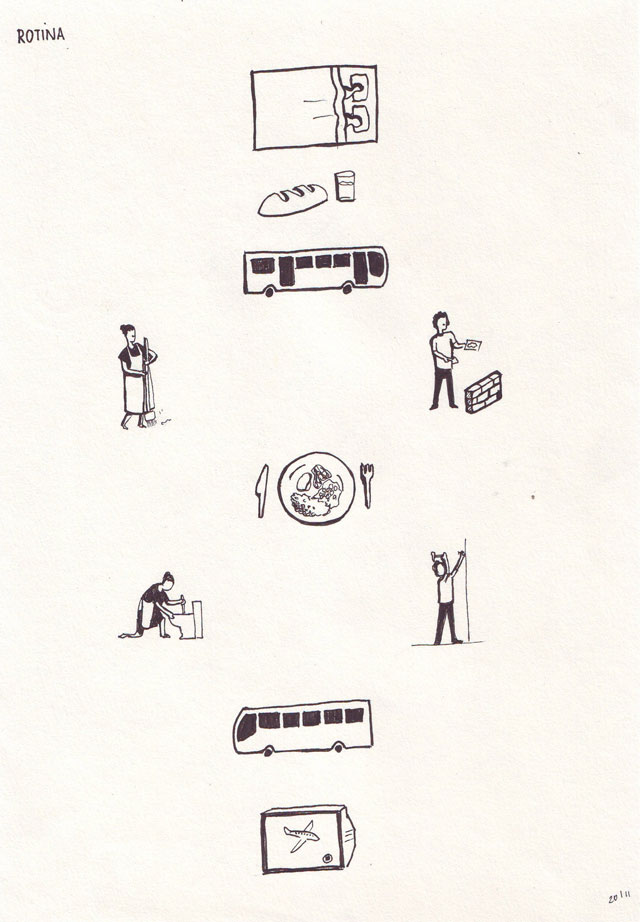 ROTINA
20/11